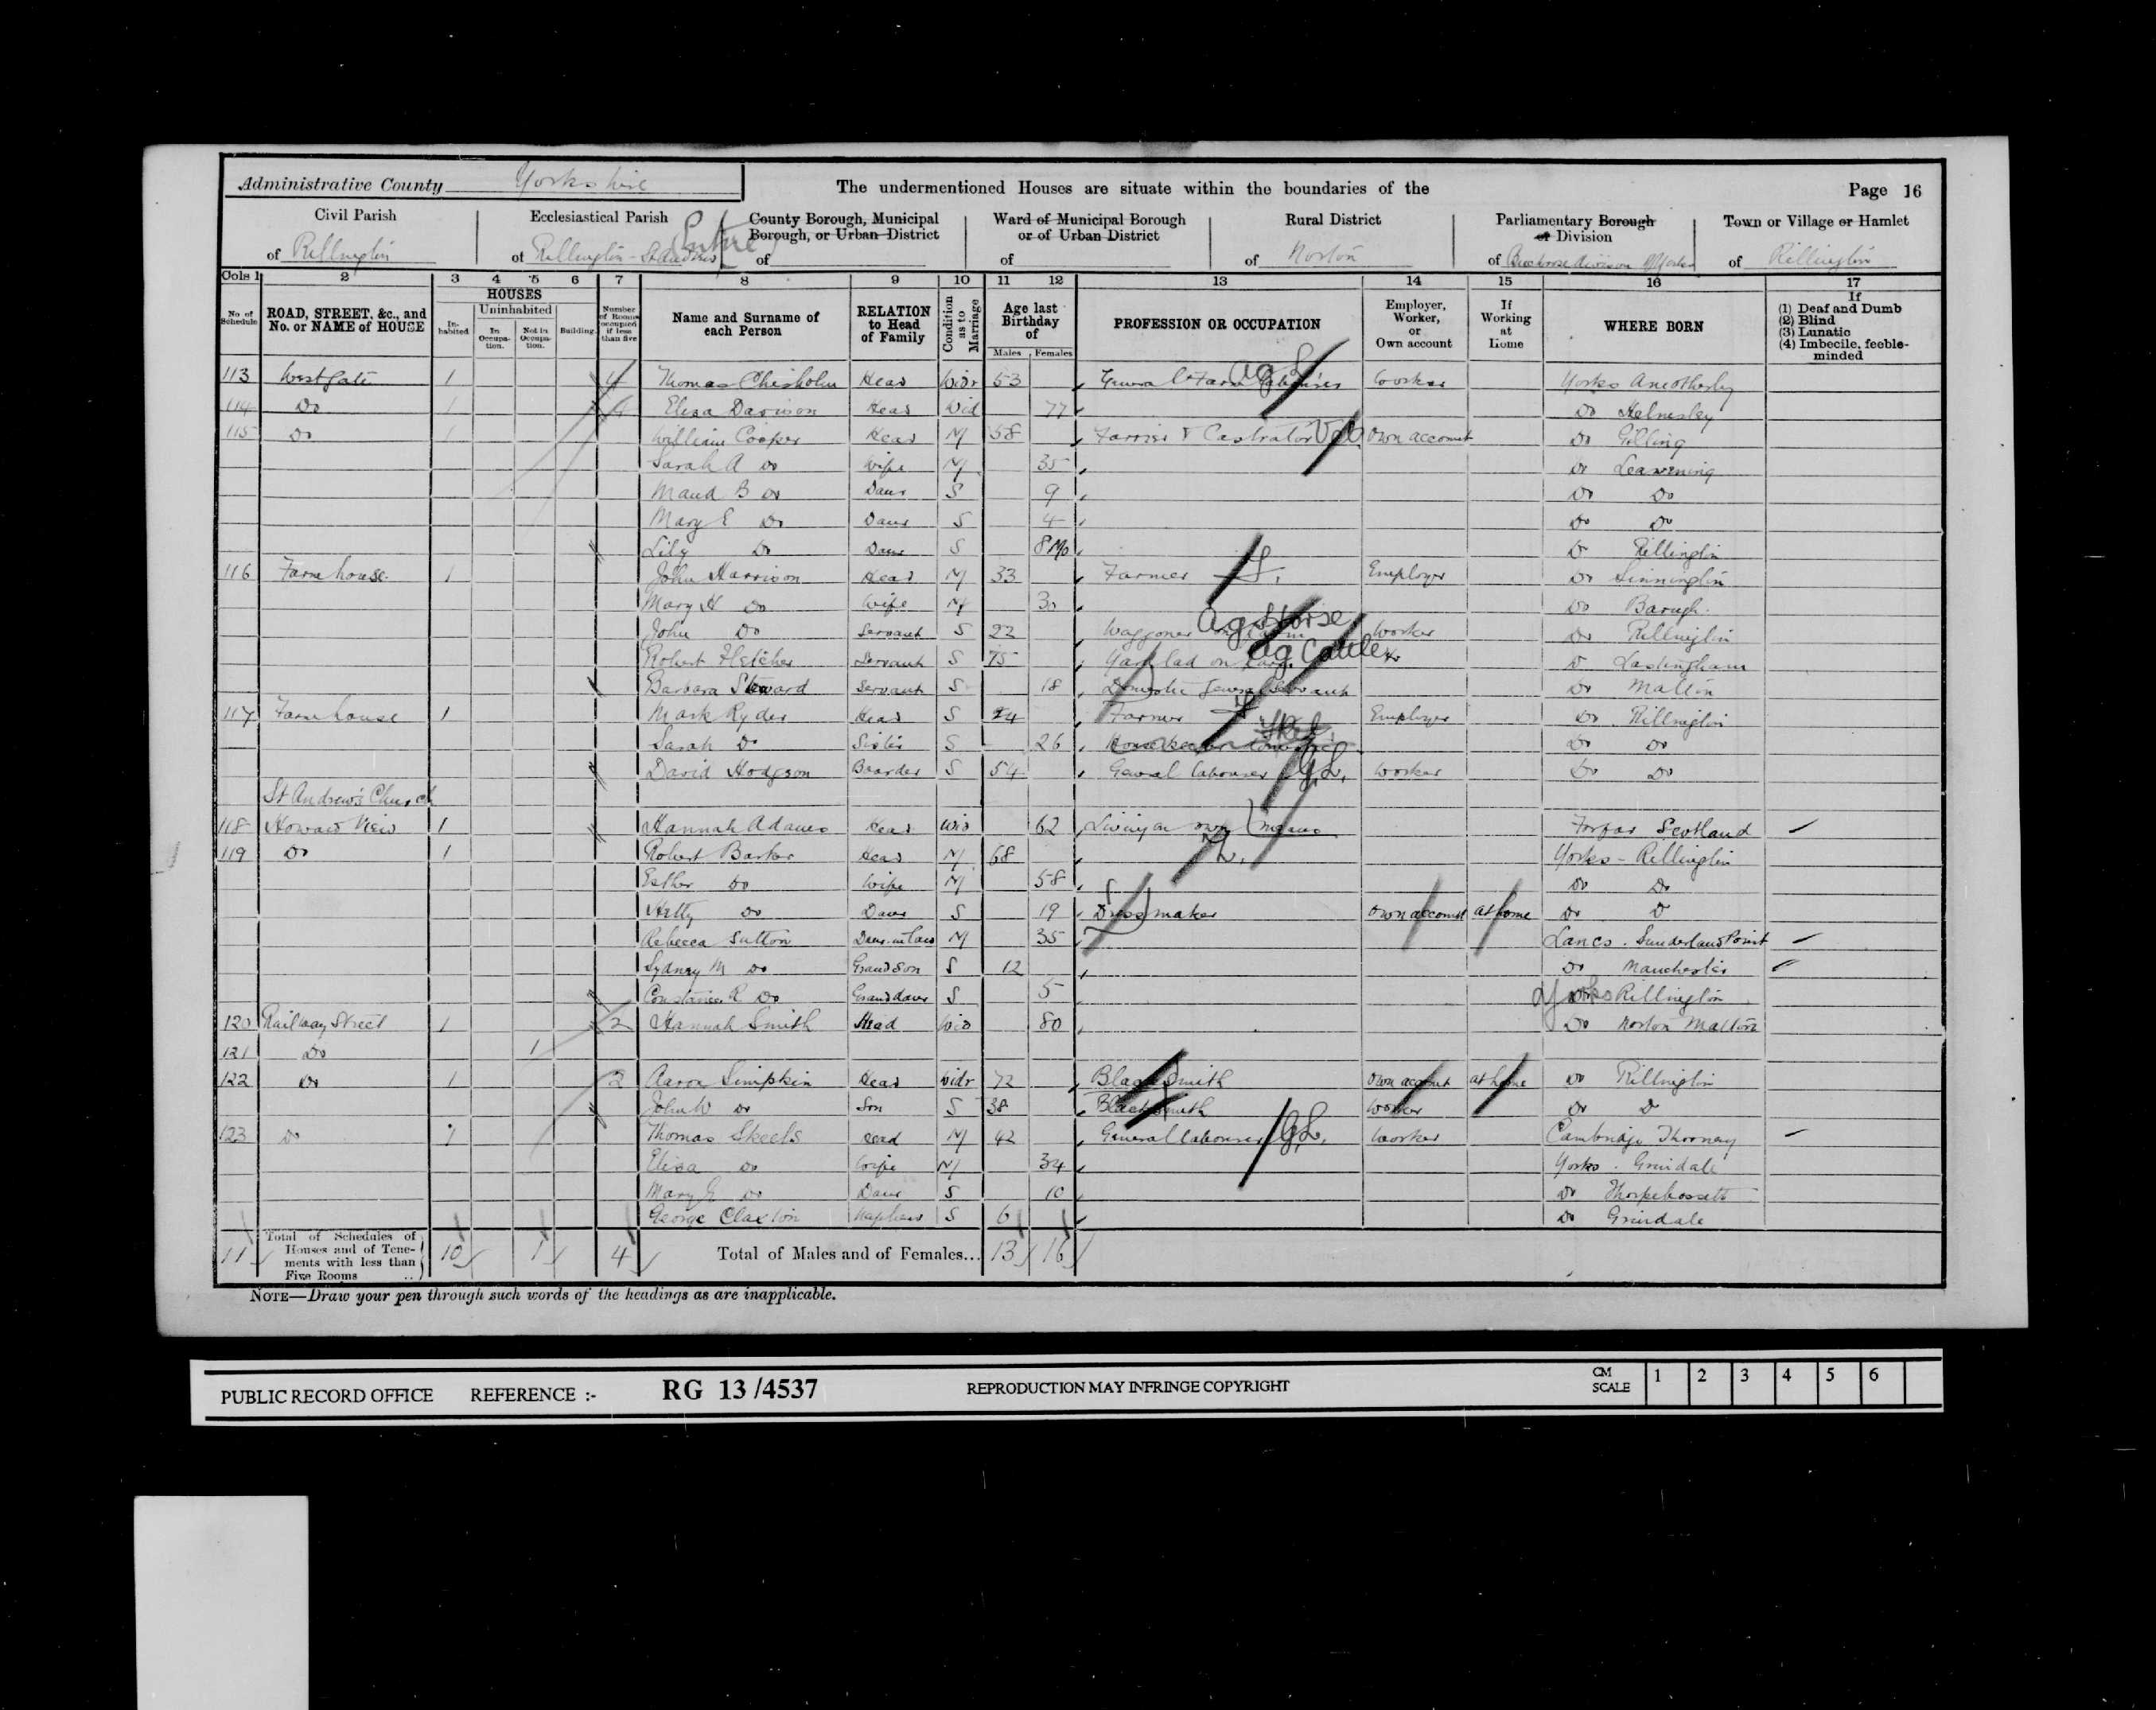 Administrative County Yorkshire
The undermentioned Houses are situate within the boundaries of the
Page 16
Civil Parish of Rillington
Ecclesiastical Parish of Rillington - St Andrews Entire
County Borough, Municipal Borough, or Urban District of
Ward of Municipal Borough or of Urban District of
Rural District of Norton
Parliamentary Borough or Division of division of Yorks
Town or Village or Hamlet of Rillington
Cols 1 2 3 4 5 6 7 8 9 10 11 12 13 14 15 16 17
No of Schedule
ROAD, STREET, &c., and No. or NAME of HOUSE
HOUSES
Inhabited
Uninhabited
In Occupation.
Not in Occupation.
Building.
Number of Rooms occupied if less than five
Name and Surname of each Person
RELATION to Head of Family
Condition as to Marriage
Age last Birthday of
Males Females
PROFESSION OR OCCUPATION
Employer, Worker, or Own account
If Working at Home
WHERE BORN
If (1) Deaf and Dumb (2) Blind (3) Lunatic (4) Imbecile, feeble-minded
113 Westgate 1 4 Thomas Chisholm Head Widr 53 General Farm Labourer Ag L Worker Yorks Amotherby
114 Do 1 4 Eliza Davison Head Wid 77 Do Helmsley
115 Do 1 William Cooper Head M 58 Farrier & Castrator Vet Own account Do Gilling
Sarah A Do Wife M 35 Do Leavening
Maud B Do Daur S 9 Do Do
Mary E Do Daur S 4 Do Do
Lily Do Daur S 8 Mo Do Rillington
116 Farm house 1 John Harrison Head M 33 Farmer F. Employer Do Sinnington
Mary H Do Wife M 30 Do Barugh
John Do Servant S 22 Waggoner on Farm Ag Horse Worker Do Rillington
Robert Fletcher Servant S 15 Yard lad on Farm Ag Cattle Do Lastingham
Barbara Steward Servant S 18 Domestic General Servant Do Malton
117 Farm house 1 Mark Ryder Head S 24 Farmer F Employer Do Rillington
Sarah Do Sister S 26 Housekeeper Domestic Do Do
David Hodgson Boarder S 54 General labourer G.L. Worker Do Do
St Andrew's Church
118 Howard View 1 Hannah Adams Head Wid 62 Living on own means Forfar Scotland
119 Do 1 Robert Barker Head M 68 Yorks - Rillington
Esther Do Wife M 58 Do Do
Hetty Do Daur S 19 Dressmaker Own account At home Do Do
Rebecca Sutton Daur. in law M 35 Lancs. Sunderland Point
Sydney M Do Grandson S 12 Do Manchester
Constance R Do Grand daur S 5 Yorks Rillington
120 Railway Street 1 2 Hannah Smith Head Wid 80 Do Norton Malton
121 Do 1
122 Do 1 2 Aaron Simpkin Head Widr 72 Blacksmith Own account at home Do Rillington
John W Do Son S 38 Blacksmith Worker Do Do
123 Do 1 Thomas Skeels Head M 42 General labourer G.L. Worker Cambridge Thorney
Eliza Do Wife M 34 Yorks. Grindale
Mary E Do Daur S 10 Do Thorpebassett
George Claxton Nephew S 6 Do Grindale
11 Total of Schedules of Houses and of Tenements with less than Five Rooms 10 1 4 Total of Males and of Females... 13 16
NOTE—Draw your pen through such words of the headings as are inapplicable.
PUBLIC RECORD OFFICE REFERENCE :- RG 13 /4537 REPRODUCTION MAY INFRINGE COPYRIGHT CM SCALE 1 2 3 4 5 6